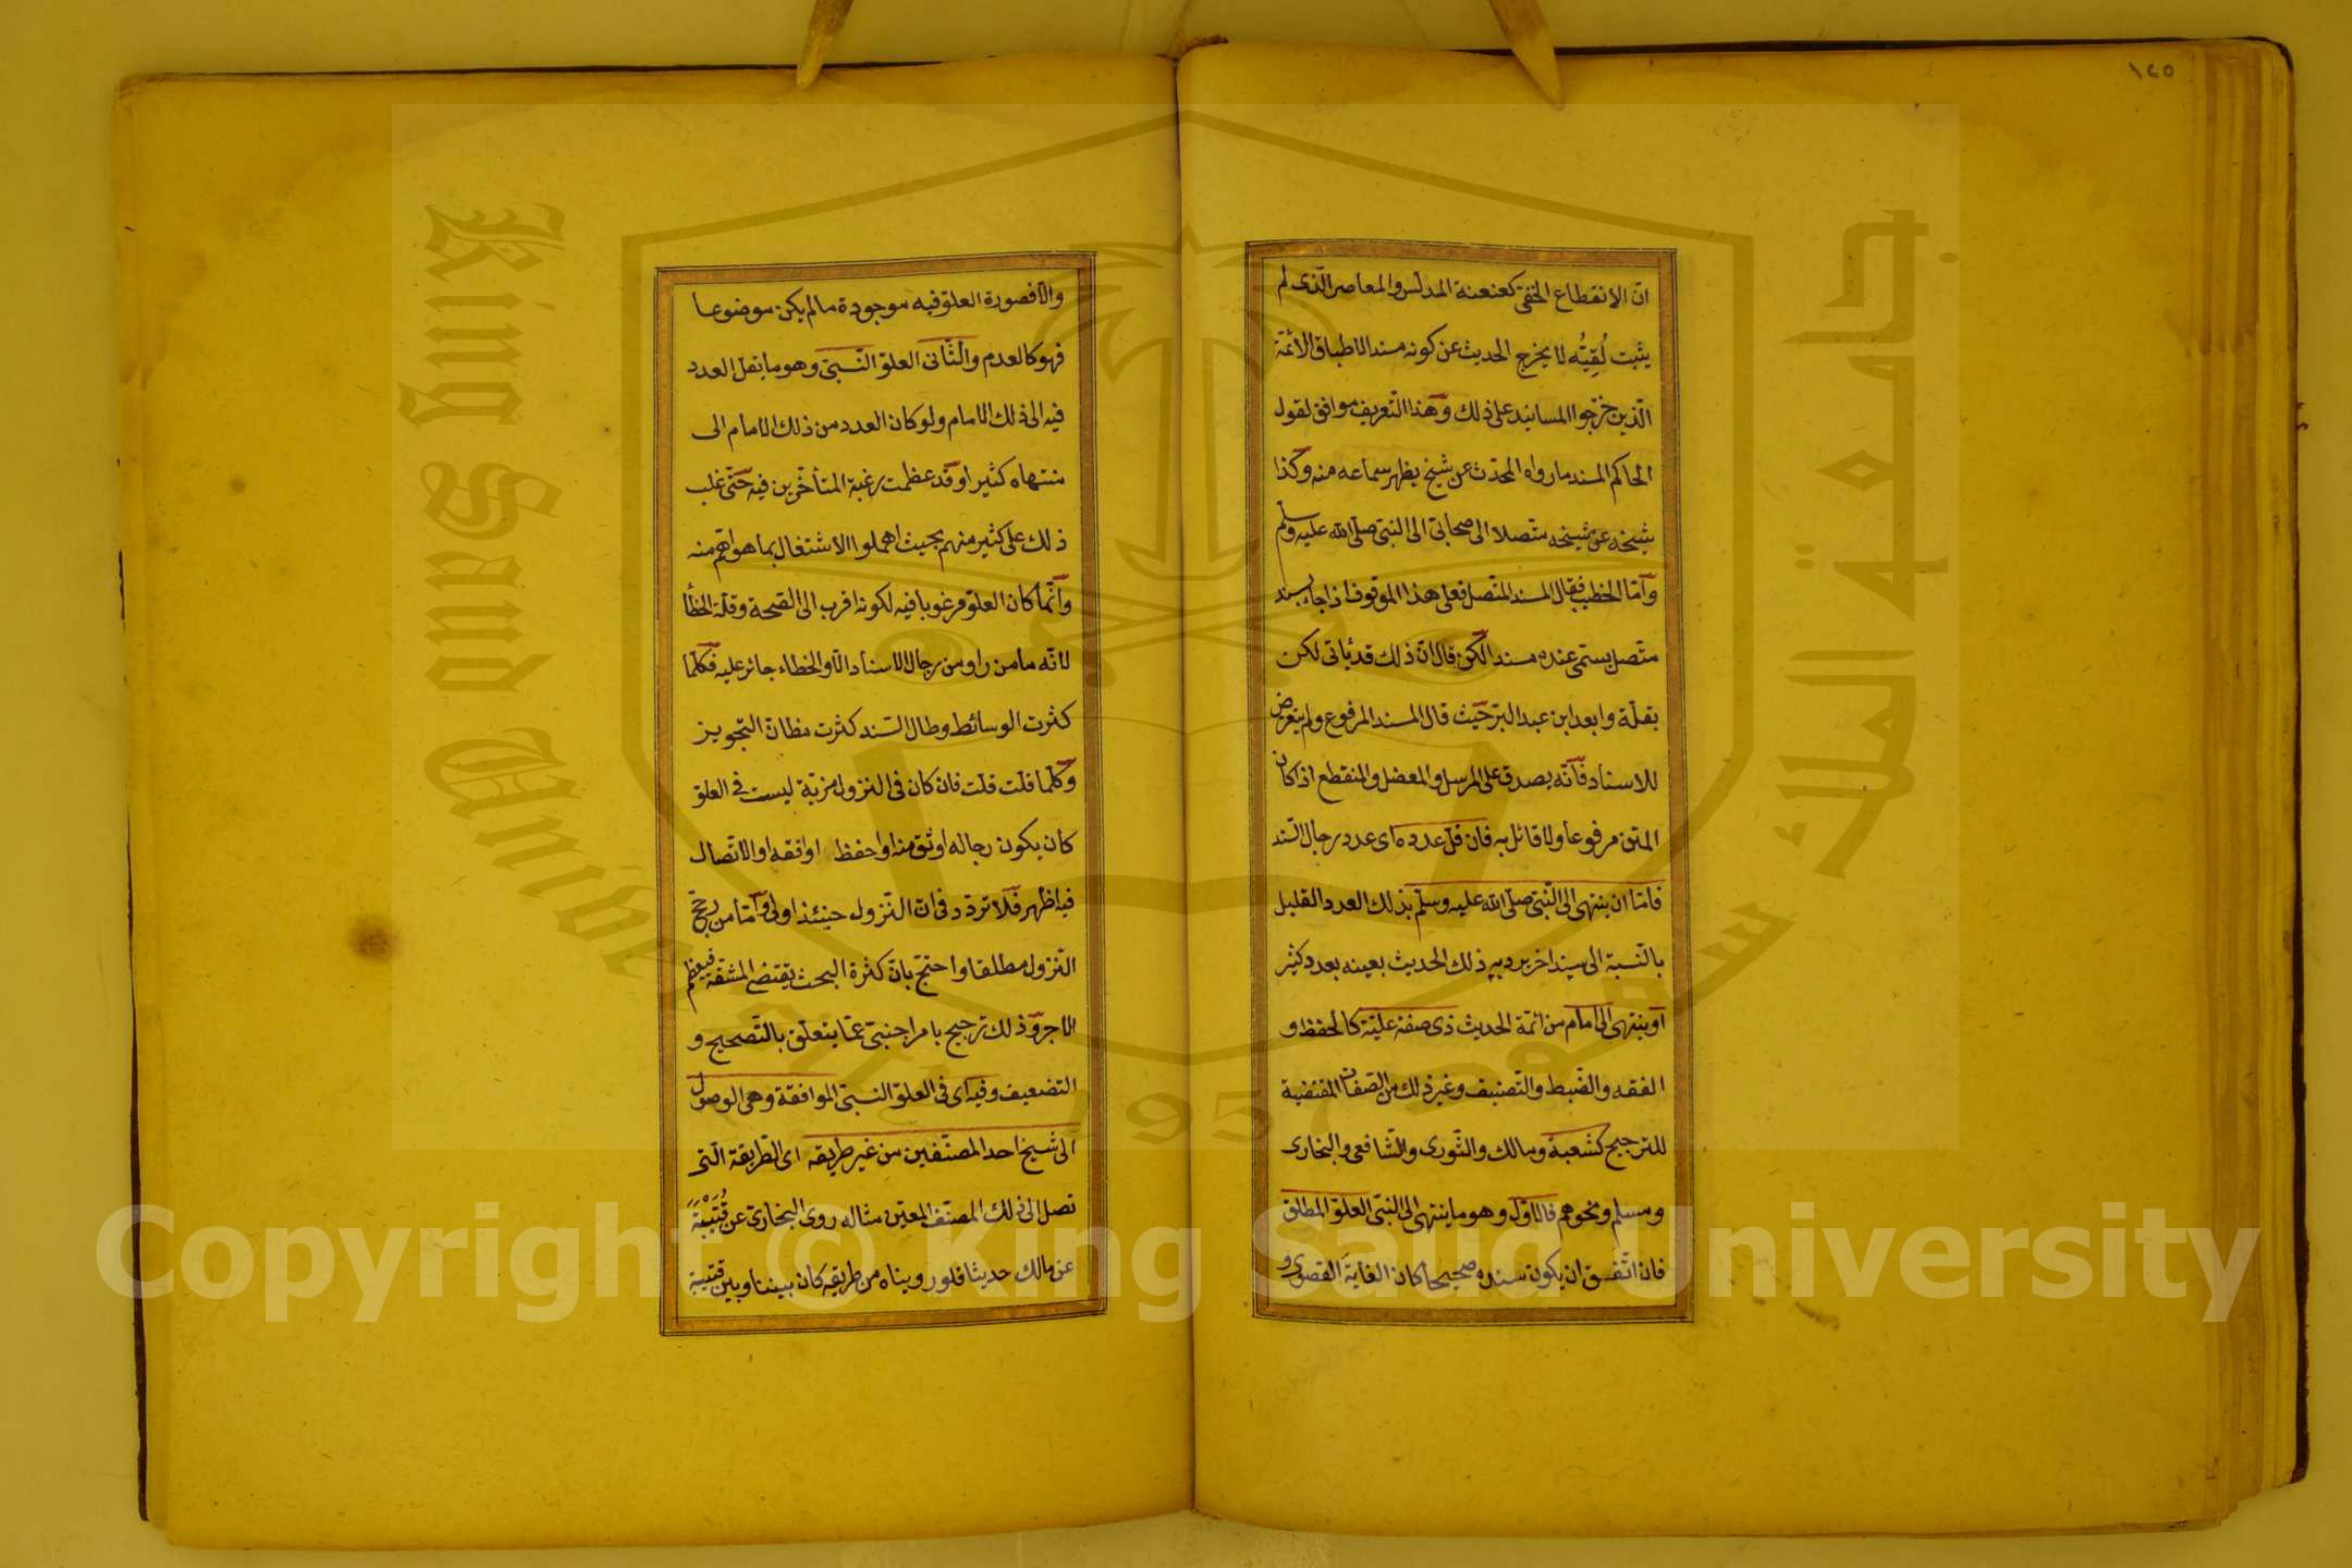 ١٤٥
انّ الانقطاع الخفيّ كعنعنة المدلّس والمعاصر الّذى لم
يثبت لُقِيُّه لا يخرج الحديث عن كونه مسندا لاطباق الائمّة
الّذين خرّجوا المسانيد على ذلك وهذا التّعريف موافق لقول
الحاكم المسند ما رواه المحدّث عن شيخ يظهر سماعه منه وكذا
شيخه عن شيخه متّصلا الى صحابيّ الى النبيّ صلّى الله عليه وسلّم
وامّا الخطيب فقال المسند المتّصل فعلى هذا الموقوف اذا جاء بسند
متّصل يسمّى عنده مسندا لكن قال انّ ذلك قد يأتى لكن
بقلّة وابعد ابن عبد البرّ حيث قال المسند المرفوع ولم يتعرض
للاسناد فانّه يصدق على المرسل والمعضل والمنقطع اذا كان
المتن مرفوعا ولا قائل به فان قلّ عدده اى عدد رجال السّند
فامّا ان ينتهى الى النّبيّ صلّى الله عليه وسلّم بذلك العدد القليل
بالنّسبة الى سند اخر يرد به ذلك الحديث بعينه بعدد كثير
او ينتهى الى امام من ائمّة الحديث ذى صفة عليّة كالحفظ و
الفقه والضّبط والتّصنيف وغير ذلك من الصّفات المقتضية
للترجيح كشعبة ومالك والثّورى والشّافعى والبخارى
ومسلم ونحوهم فالاوّل وهو ما ينتهى الى النبّى العلوّ المطلق
فان اتّفق ان يكون سنده صحيحا كان الغاية القصوى و
والّا فصورة العلوّ فيه موجودة ما لم يكن موضوعا
فهو كالعدم والثّانى العلوّ النّسبيّ وهو ما يقلّ العدد
فيه الى ذلك الامام ولو كان العدد من ذلك الامام الى
منتهاه كثيرا وقد عظمت رغبة المتأخّرين فيه حتّى غلب
ذلك على كثير منهم بحيث اهملوا الاشتغال بما هو اهمّ منه
وانّما كان العلوّ مرغوبا فيه لكونه اقرب الى الصّحة وقلّة الخطأ
لانّه ما من راو من رجال الاسناد الّا والخطاء جائز عليه فكلّما
كثرت الوسائط وطال السّند كثرت مظانّ التّجويز
وكلّما قلّت قلّت فان كان فى النزول مزيّة ليست فى العلوّ
كأن يكون رجاله اوثق منه او احفظ او افقه او الاتّصال
فيه اظهر فلا تردّد فى انّ النّزول حينئذ اولى وامّا من رجّح
النّزول مطلقا واحتجّ بانّ كثرة البحث يقتضى المشقّة فيعظم
الاجر وذلك ترجيح بامر اجنبيّ عمّا يتعلّق بالتّصحيح و
التضعيف وفيه اى فى العلوّ النسبيّ الموافقة وهى الوصول
الى شيخ احد المصنّفين من غير طريقه اى الطّريقة الّتى
تصل الى ذلك المصنّف المعيّن مثاله روى البخاريّ عن قُتَيْبَةَ
عن مالك حديثا فلو رويناه من طريقه كان بيننا وبين قتيبة
جامعة الملك سعود
King Saud Unive
1957
Copyright © King Saud University